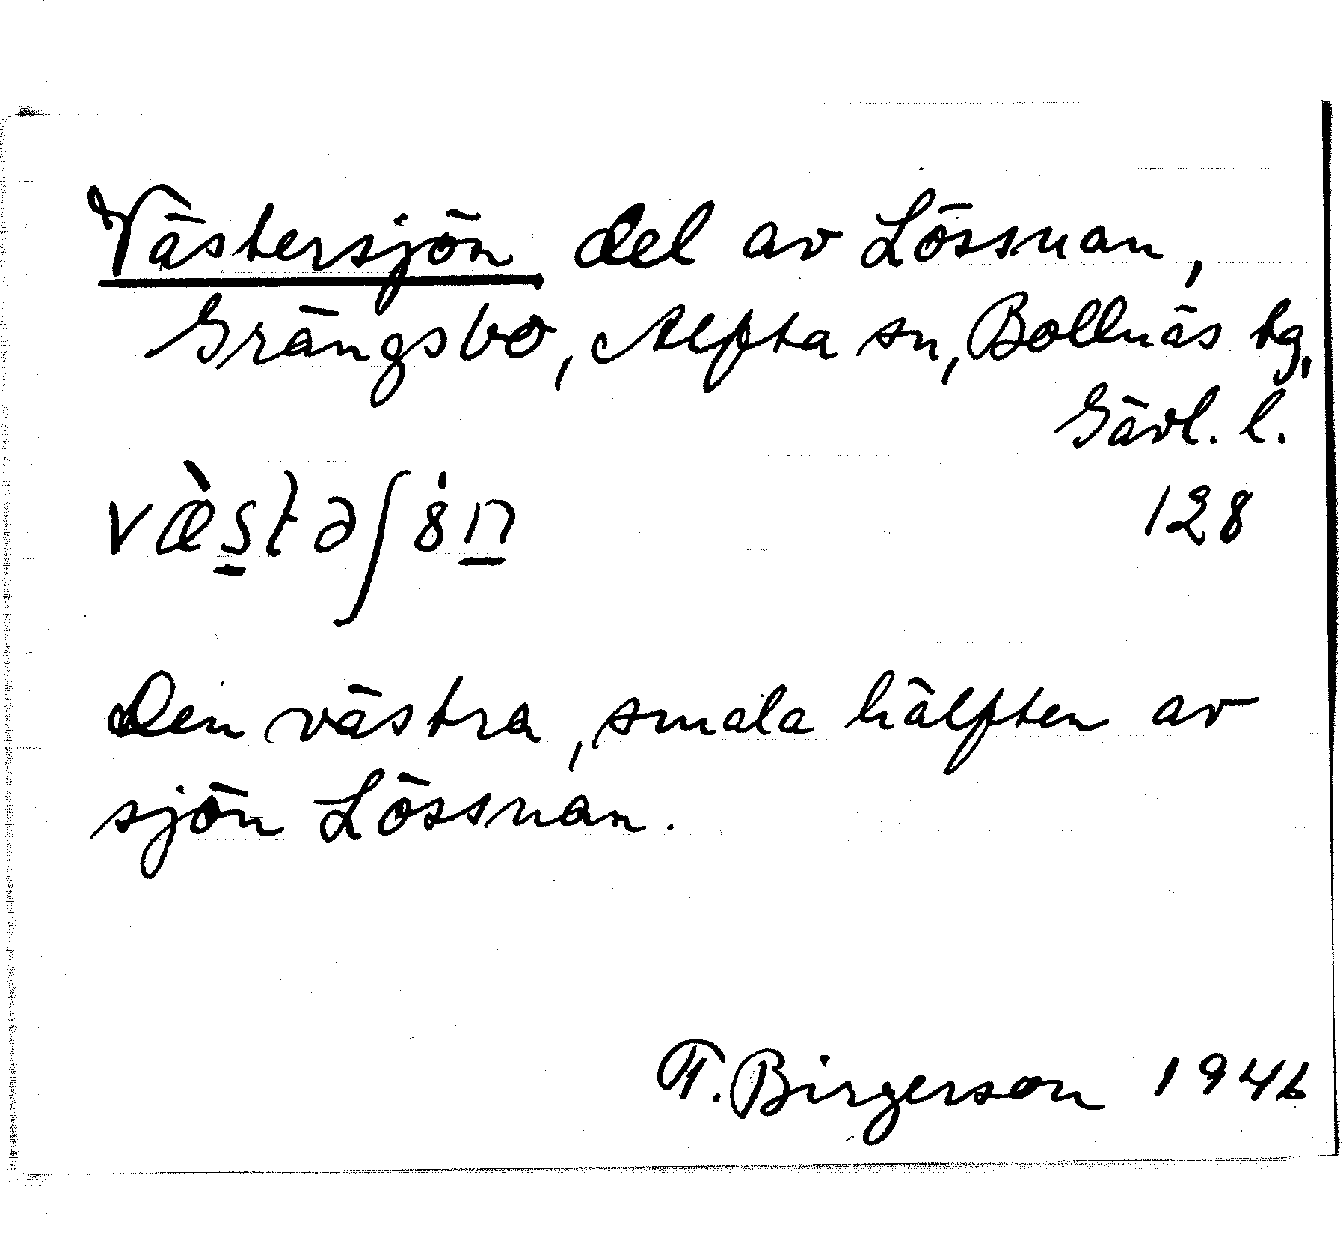 Västersjön del av Lössnan,
Grängsbo, Alfta sn, Bollnäs tg,
Gävl. l.
128
Den västra, smala hälften av
sjön Lössnan.
T. Birgerson 1946